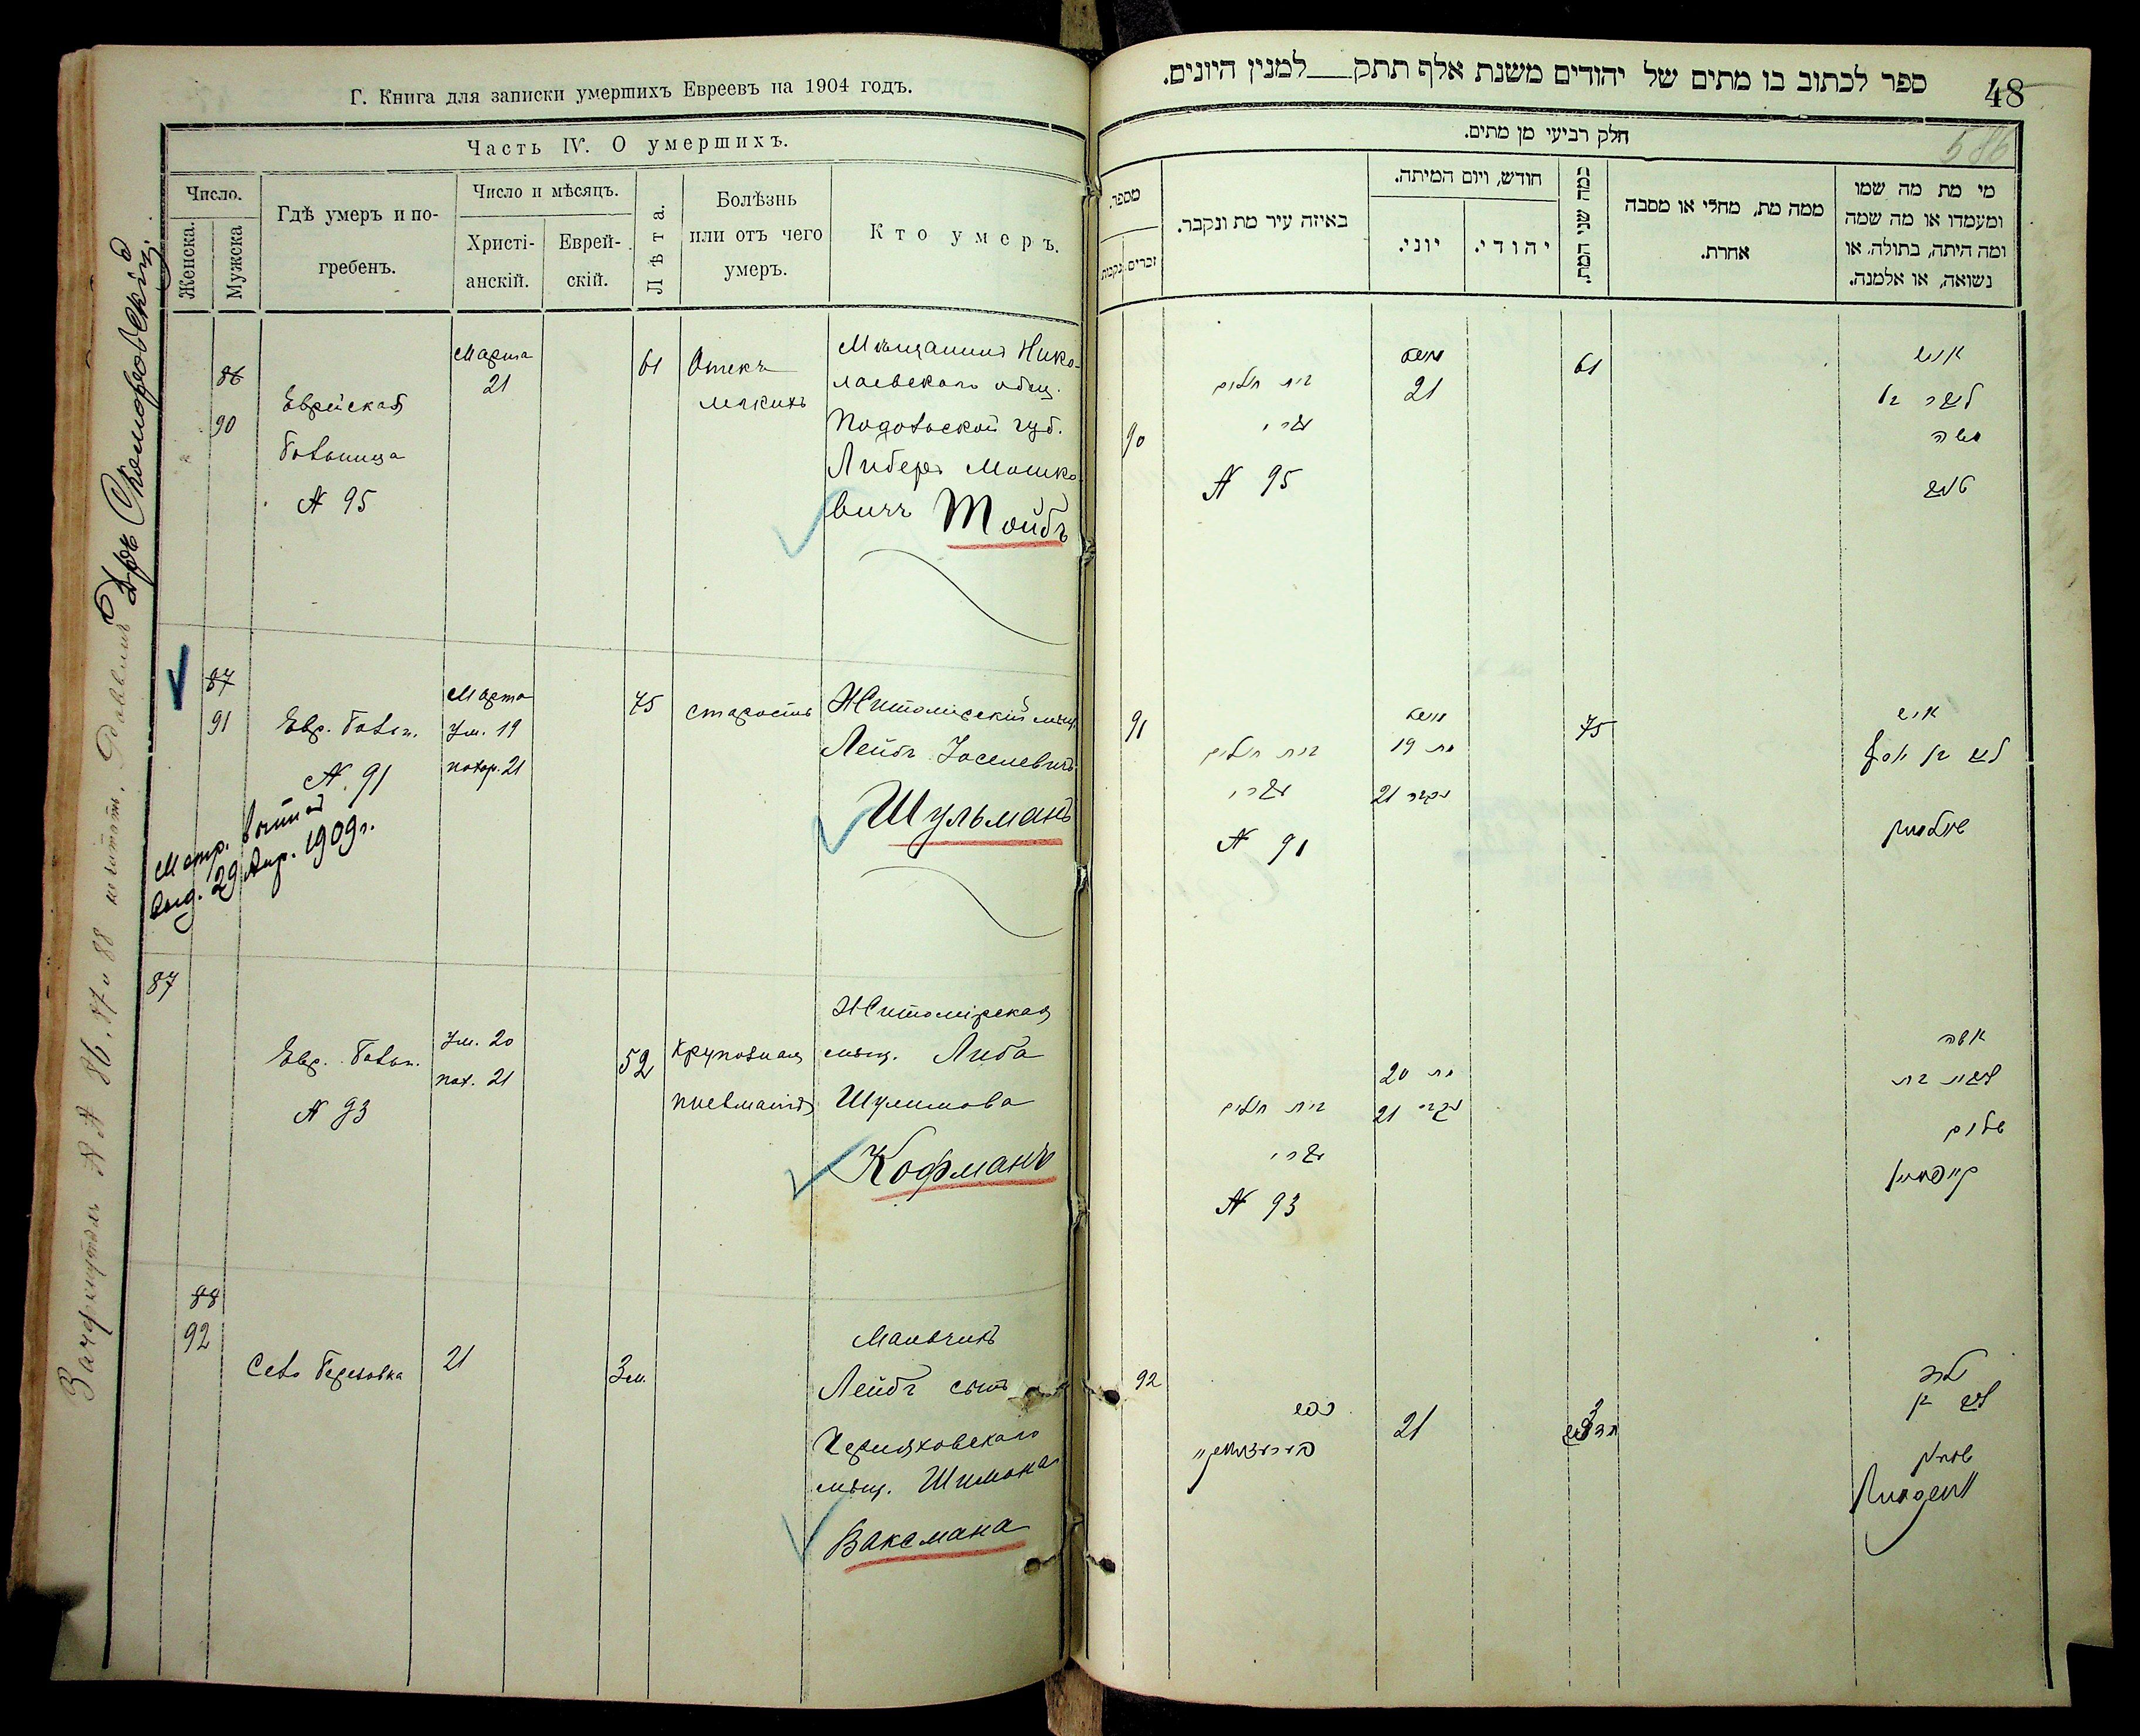 Г. Книга для записки умершихъ Евреевъ на 1904 годъ.
Часть IV. О умершихъ.
Число.
Женска.
Мужска
Гдѣ умеръ и по-
гребенъ.
Число и мѣсяцъ.
Христі-
анскій.
Еврей-
скій.
Лѣта.
Болѣзнь
или отъ чего
умеръ.
Кто умеръ.
86
90
Еврейская
больница
№ 95
Марта
21
61
Отекъ
легкихъ
Мѣщанинъ Нико-
лаевскаго общ.
Подольской губ.
Либеръ Мошко-
вичъ Тойбъ
87
91
Евр. больн.
№ 91
Марта
Ум. 19
похор. 21
75
старость
Житомірскій мѣщ.
Лейбъ Іоселевичъ
Шульманъ
Метр. выпись
выд. 29 Апр. 1909 г.
87
Евр. больн.
№ 93
Ум. 20
пох. 21
52
Крупозная
пневмонія
Житомірская
мѣщ. Либа
Шулимова
Кофманъ
88
92
Село Березовка
21
3 м.
Мальчикъ
Лейбъ сынъ
Черняховскаго
мѣщ. Шимона
Ваксмана
Зачеркнутыя №№ 86, 87 и 88 не читать.
Скоморовскій
48
586
ספר לכתוב בו מתים של יהודים משנת אלף תתק___למנין היונים.
חלק רביעי מן מתים.
מספר.
זכרים.
נקבות
באיזה עיר מת ונקבר.
חודש, ויום המיתה.
יוני.
יהודי.
כמה שני המת.
ממה מת, מחלי או מסבה
אחרת.
מי מת מה שמו
ומעמדו או מה שמה
ומה היתה, בתולה, או
נשואה, או אלמנה.
90
בית חולים
עברי
№ 95
מארט
21
61
איש
ליבער בן
משה
טויב
91
בית חולים
עברי
№ 91
מארט
מת 19
נקבר 21
75
איש
ליב בן יוסף
שולמאן
בית חולים
עברי
№ 93
מת 20
נקברה 21
אשה
ליבא בת
שלום
קויפמאן
92
כפר
21
3
ילד
ליב בן
שמעון